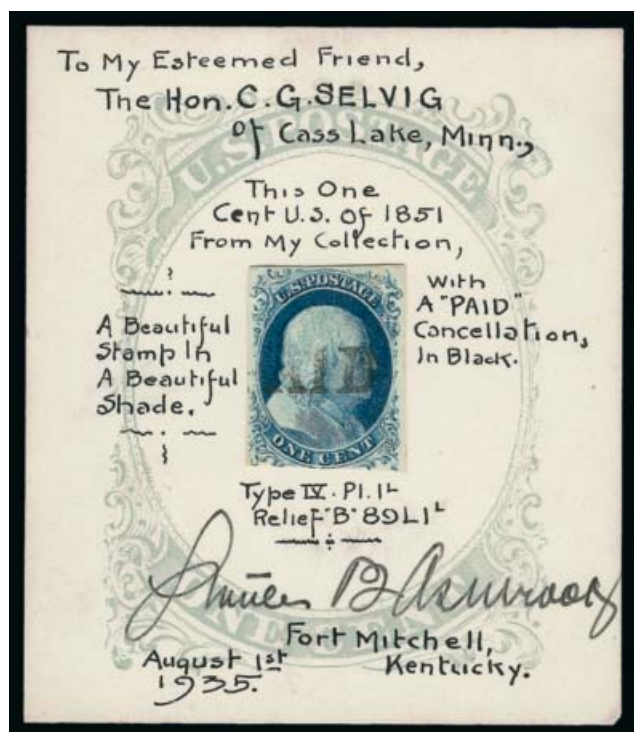 To My Esteemed Friend,
The Hon. C.G. SELVIG
of Cass Lake, Minn.,
U.S. POSTAGE
This One
Cent U.S. Of 1851
From My Collection,
A Beautiful
Stamp In
A Beautiful
Shade.
U.S. POSTAGE
AID
ONE CENT
With
A "PAID"
Cancellation,
In Black.
Type IV. Pl. 1L
Relief "B" 89L1L
B Ashbrook
ONE CENT
Fort Mitchell,
Kentucky.
August 1st
1935.